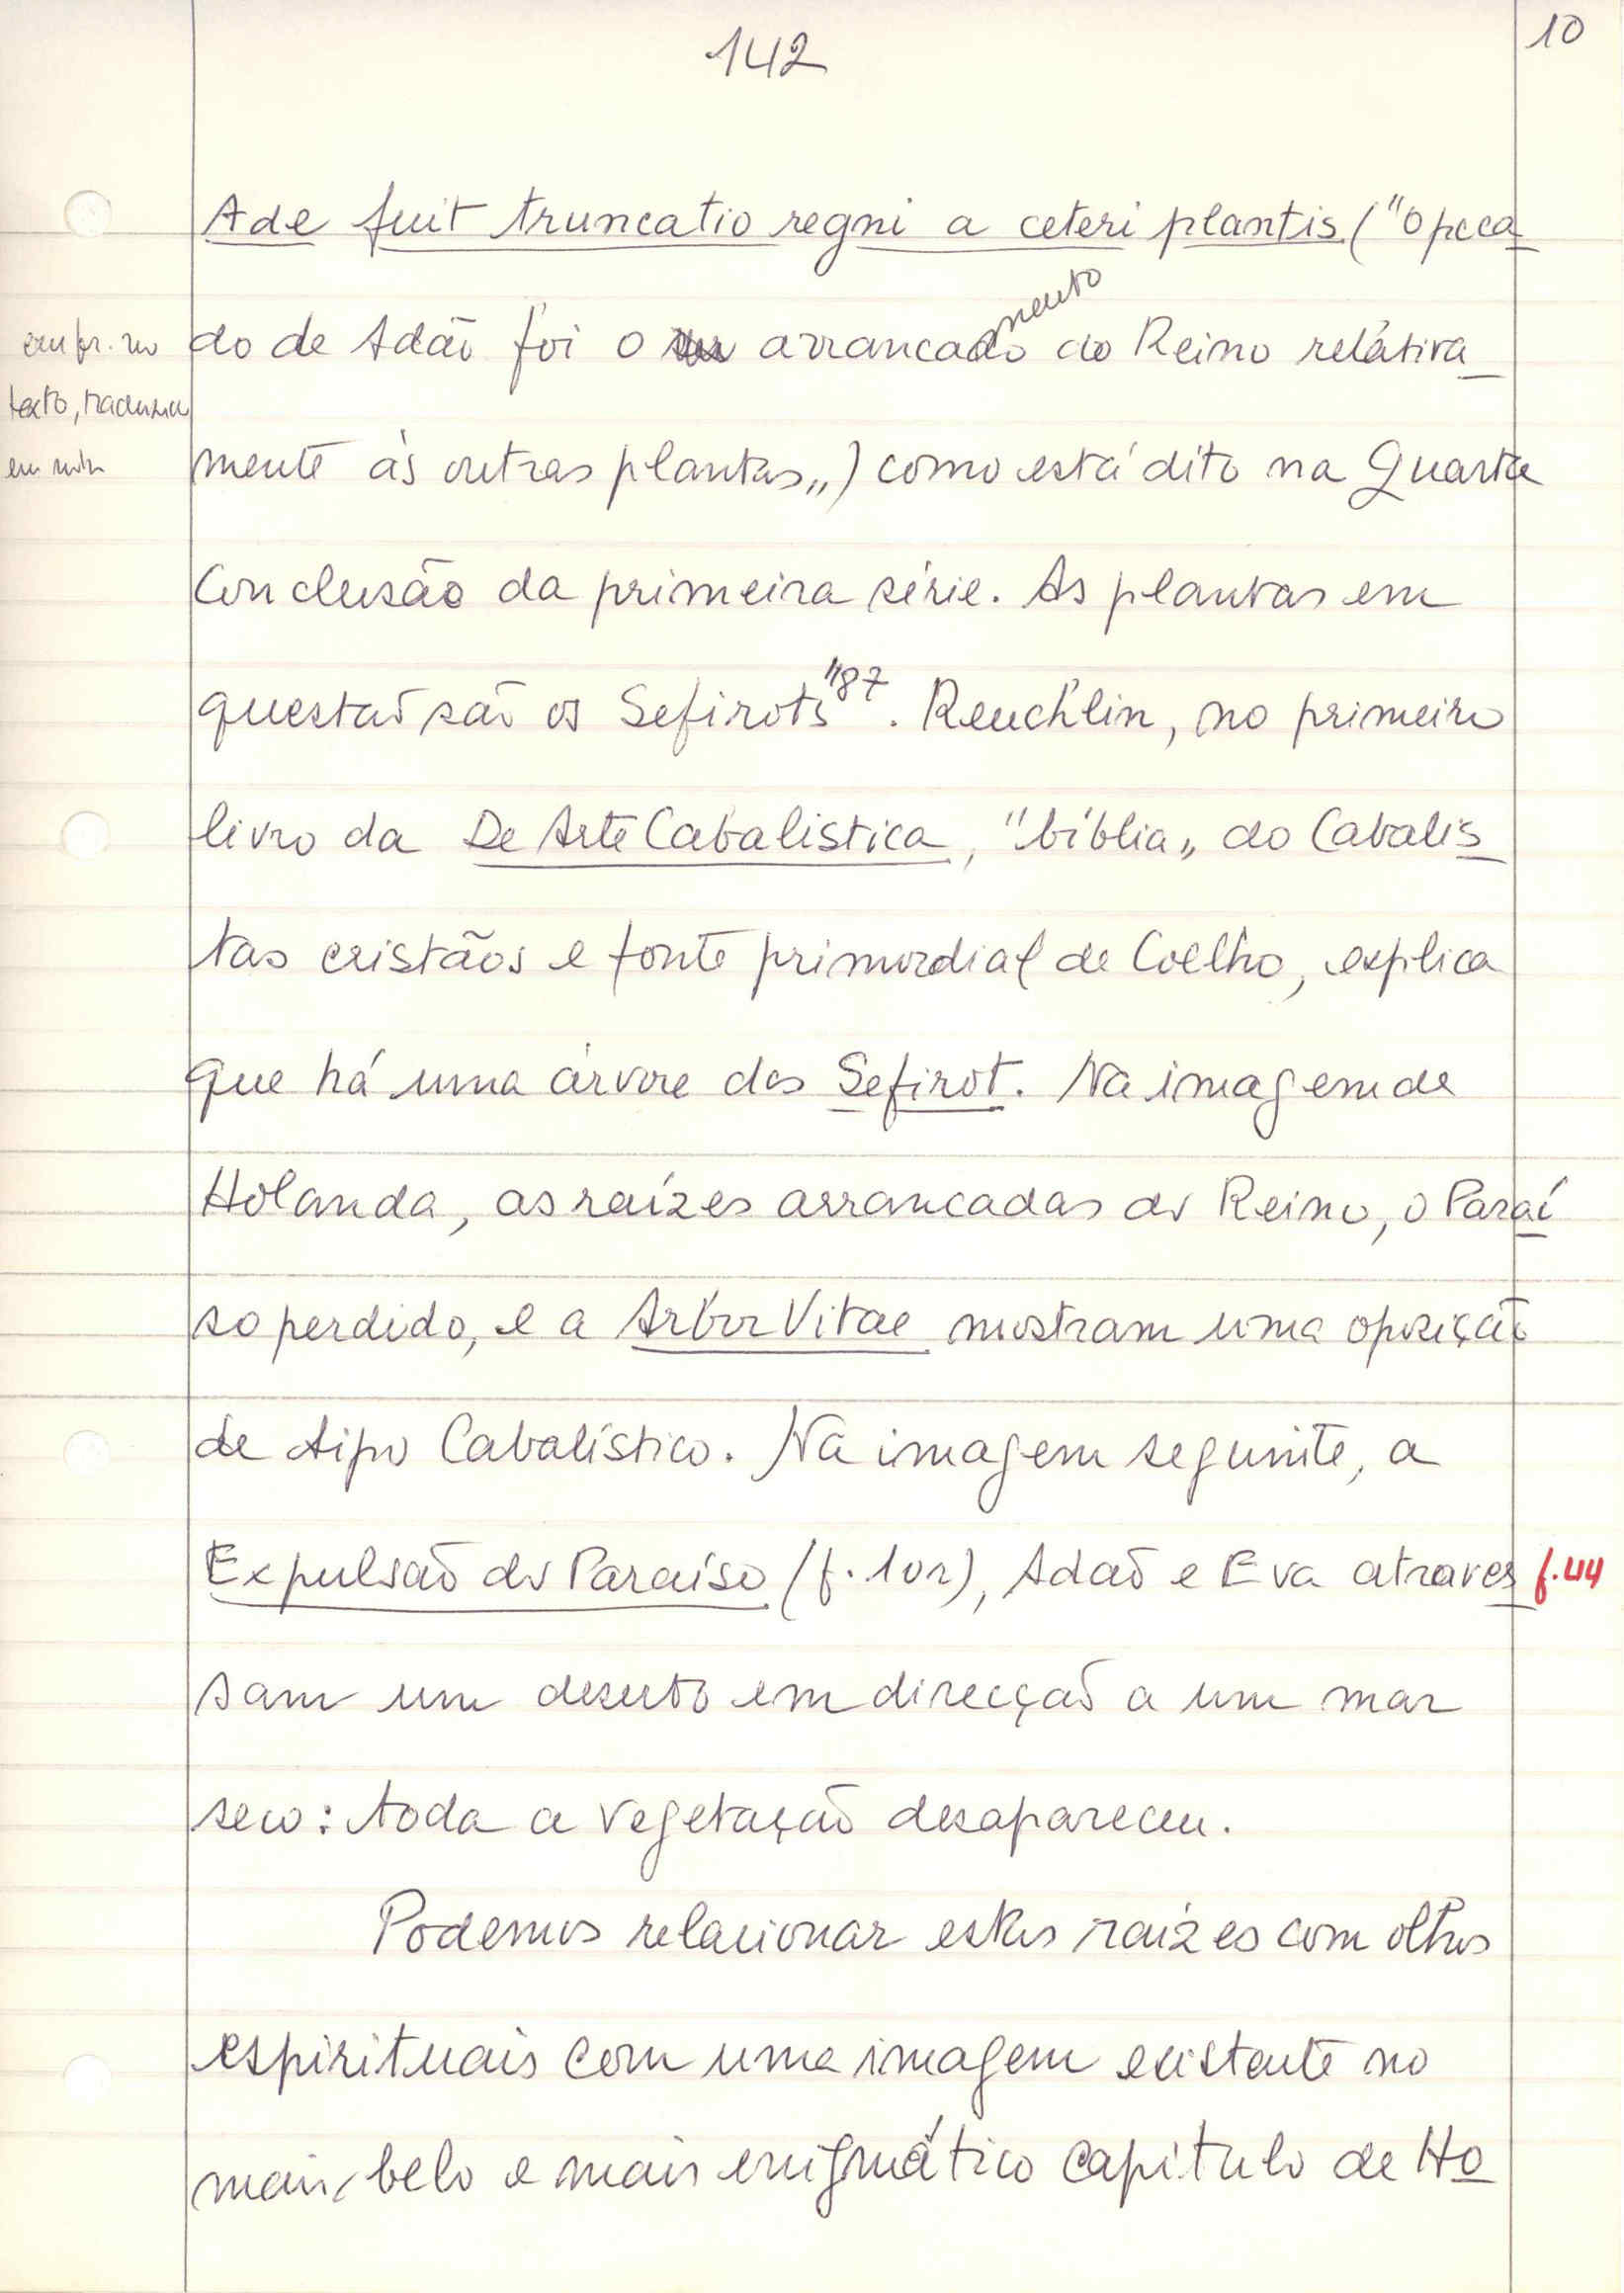 142
10
Ade fuit truncatio regni a ceteri plantis ("O peca
do de Adão foi o arrancamento do Reino relativa
em fr. no
texto, traduzir
em nota
mente às outras plantas„) como está dito na Quarta
Conclusão da primeira série. As plantas em
questão são os Sefirots"87. Reuchlin, no primeiro
livro da De Arte Cabalistica, "bíblia„ do Cabalis
tas cristãos e fonte primordial de Coelho, explica
que há uma árvore dos Sefirot. Na imagem de
Holanda, as raízes arrancadas do Reino, o Paraí
so perdido, e a Arbor Vitae mostram uma oposição
de tipo Cabalístico. Na imagem seguinte, a
Expulsão do Paraíso (f. 10r), Adão e Eva atraves
f.44
sam um deserto em direcção a um mar
seco: toda a vegetação desapareceu.
Podemos relacionar estas raízes com olhos
espirituais com uma imagem existente no
mais belo e mais enigmático capítulo de Ho